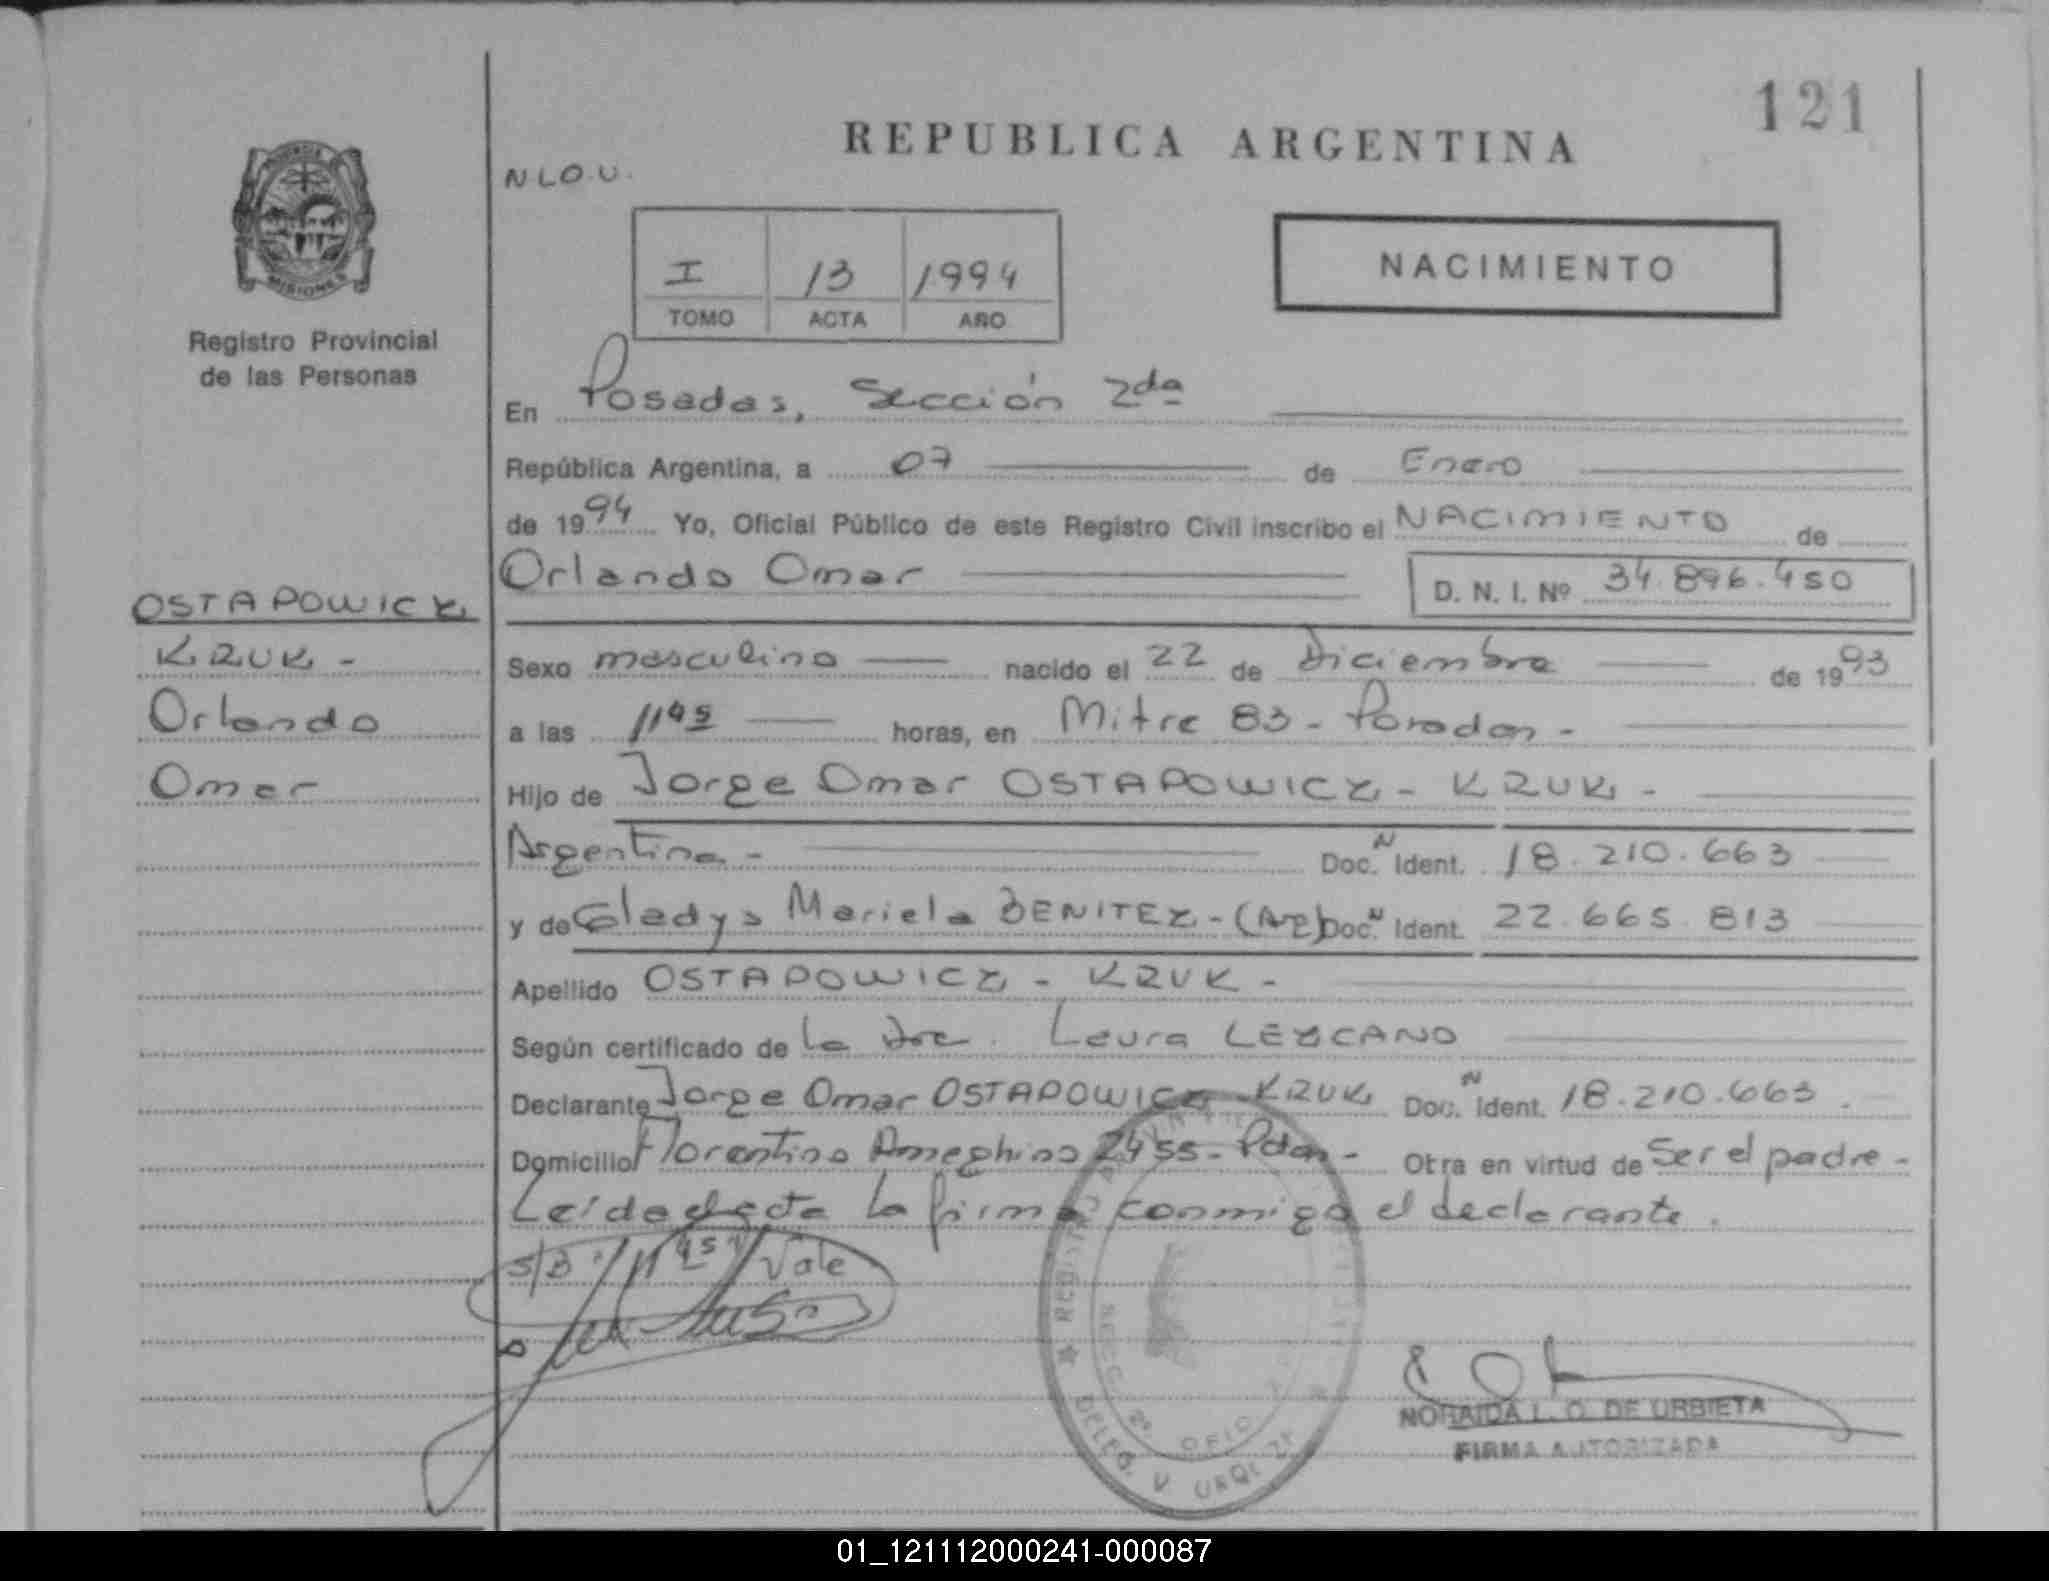 121
REPUBLICA ARGENTINA
N L O. U.
PROVINCIA DE
MISIONES
Registro Provincial
de las Personas
I 13 1994
TOMO ACTA AÑO
NACIMIENTO
En Posadas, Sección 2da
República Argentina, a 07 de Enero
de 1994 Yo, Oficial Público de este Registro Civil inscribo el NACIMIENTO de
Orlando Omar D. N. I. Nº 34.896.450
OSTAPOWICZ
KRUK -
Orlando
Omar
Sexo masculino nacido el 22 de Diciembre de 1993
a las 11 45 horas, en Mitre 83 - Posadas -
Hijo de Jorge Omar OSTAPOWICZ - KRUK -
Argentina - Doc. N Ident. 18.210.663
y de Gladys Mariela BENITEZ - (Arg) Doc. N Ident. 22.665.813
Apellido OSTAPOWICZ - KRUK -
Según certificado de la Dra. Laura LEZCANO
Declarante Jorge Omar OSTAPOWICZ - KRUK Doc. N Ident. 18.210.663.
Domicilio Florentino Ameghino 2455 - Pdas - Otra en virtud de Ser el padre -
Leída el acta la firma conmigo el declarante.
S/B "11 45" Vale
DELEG. V URQUIZA
SECC. 2ª OFIC
NORAIDA L. O. DE URBIETA
FIRMA AUTORIZADA
01_121112000241-000087